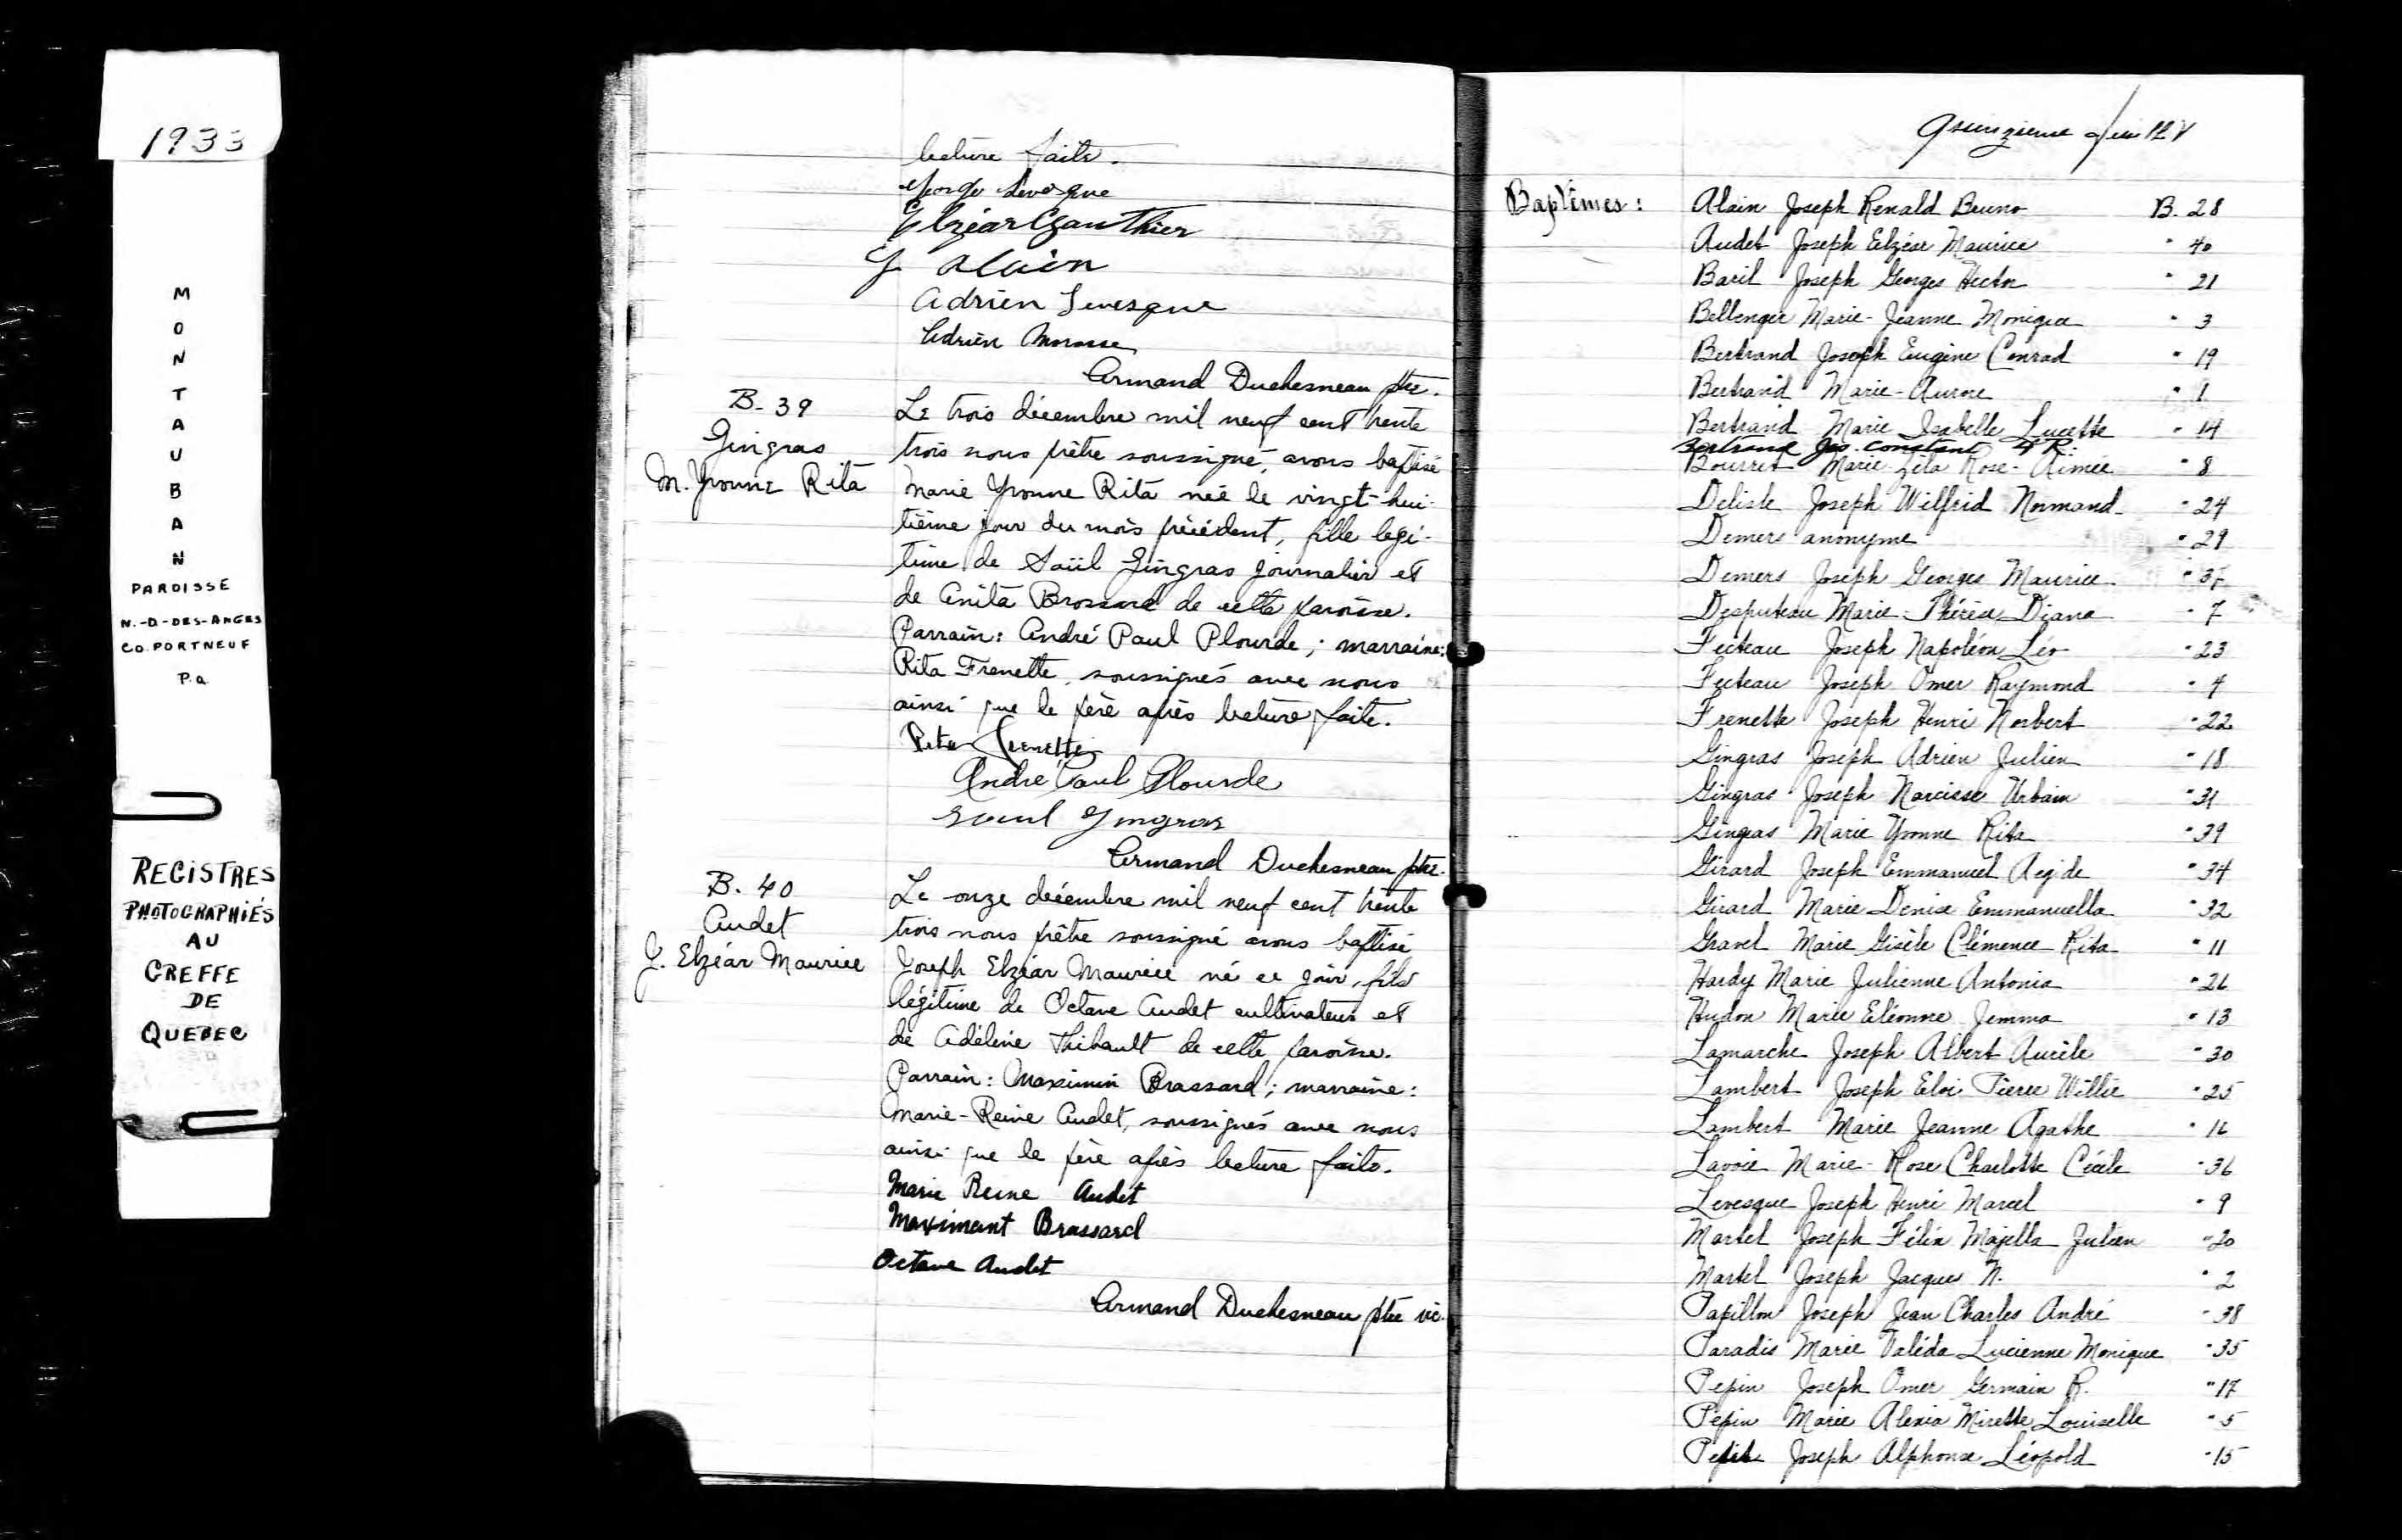 1933
M
O
N
T
A
U
B
A
N
PAROISSE
N.-D-DES-ANGES
CO. PORTNEUF
P.Q.
REGISTRES
PHOTOGRAPHIÉS
AU
GREFFE
DE
QUEBEC
lecture faite.
Elzéar Gauthier
J. Alain
Adrien Levesque
Adrien Morasse
Armand Duchesneau ptre.
B-39
Gingras
M. Yvonne Rita
Le trois décembre mil neuf cent trente
trois nous prêtre soussigné, avons baptisé
Marie Yvonne Rita née le vingt-hui-
tième jour du mois précédent, fille légi-
time de Saül Gingras journalier et
de Anita Brossard de cette paroisse.
Parrain: André Paul Plourde; marraine:
Rita Frenette, soussignés avec nous
ainsi que le père après lecture faite.
Rita Frenette
André Paul Plourde
Saul Gingras
Armand Duchesneau ptre.
B. 40
Audet
J. Elzéar Maurice
Le onze décembre mil neuf cent trente
trois nous prêtre soussigné avons baptisé
Joseph Elzéar Maurice né ce jour, fils
légitime de Octave Audet cultivateur et
de Adéline Thibault de cette paroisse.
Parrain: Maximin Brassard; marraine:
Marie-Reine Audet, soussignés avec nous
ainsi que le père après lecture faite.
Marie Reine Audet
Maximent Brassard
Octave Audet
Armand Duchesneau ptre vic.
Quinzième
Baptêmes:
Alain Joseph Renald Bruno B. 28
Audet Joseph Elzéar Maurice " 40
Baril Joseph Georges Hector " 21
Bellenger Marie-Jeanne Monique " 3
Bertrand Joseph Eugène Conrad " 19
Bertrand Marie-Aurore " 1
Bertrand Marie Isabelle Lucette " 14
Bertrand Jos. Constant 4 R.
Bourret Marie Zita Rose-Aimée " 8
Delisle Joseph Wilfrid Normand " 24
Demers anonyme " 29
Demers Joseph Georges Maurice " 37
Desputeau Marie-Thérèse Diana " 7
Fecteau Joseph Napoléon Léo " 23
Fecteau Joseph Omer Raymond " 4
Frenette Joseph Henri Norbert " 22
Gingras Joseph Adrien Julien " 18
Gingras Joseph Narcisse Urbain " 31
Gingras Marie Yvonne Rita " 39
Girard Joseph Emmanuel Aegide " 34
Girard Marie Denise Emmanuella " 32
Gravel Marie Gisèle Clémence Rita " 11
Hardy Marie Julienne Antonia " 26
Hudon Marie Eléonne Jemma " 13
Lamarche Joseph Albert Aurèle " 30
Lambert Joseph Eloi Pierre Willie " 25
Lambert Marie Jeanne Agathe " 16
Lavoie Marie-Rose Charlotte Cécile " 36
Levesque Joseph Henri Marcel " 9
Martel Joseph Félix Majella Julien " 20
Martel Joseph Jacques N. " 2
Papillon Joseph Jean Charles André " 38
Paradis Marie Valéda Lucienne Monique " 35
Pepin Joseph Omer Germain R. " 17
Pepin Marie Alexia Mirette Louiselle " 5
Petit Joseph Alphonse Léopold " 15